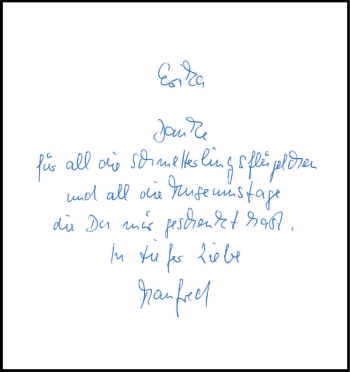 Erika
Danke
für all die Schmetterlingsflügelchen
und all die Museumstage
die Du mir geschenkt hast.
In tiefer Liebe
Manfred